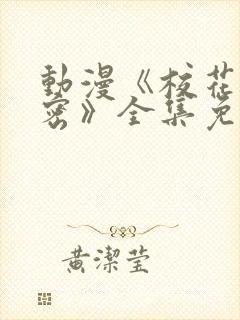 動漫《校花
密》全集免
黃潔瑩